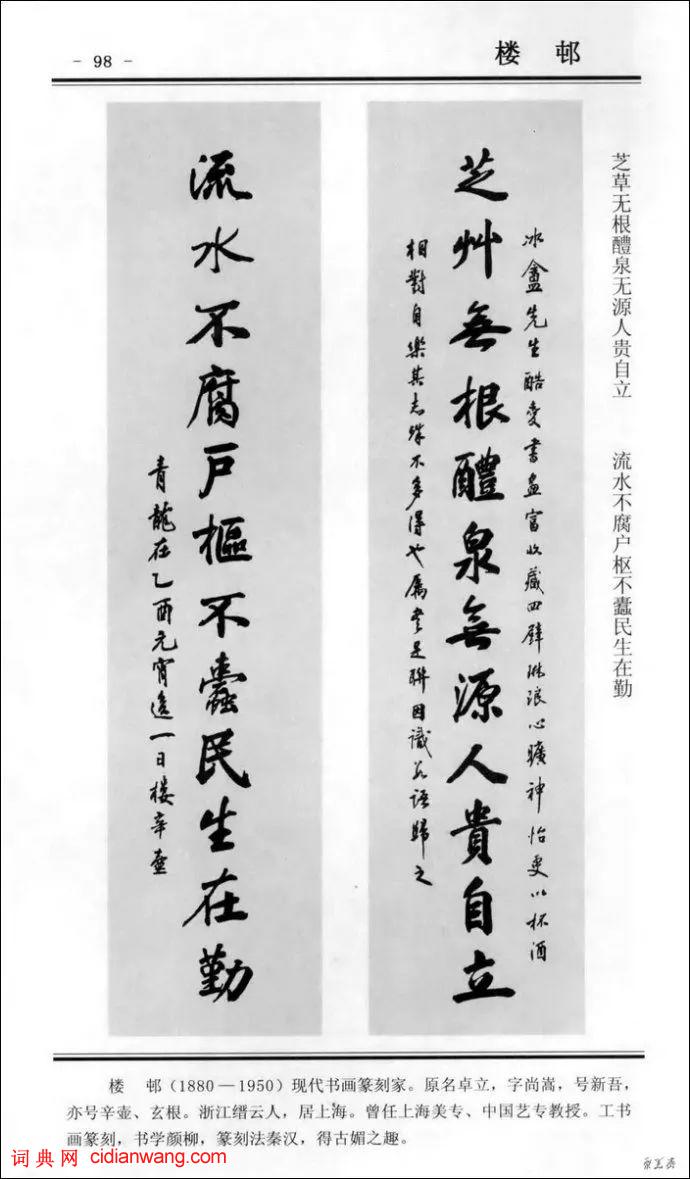 - 98 -
楼 邨
芝草无根醴泉无源人贵自立 流水不腐户枢不蠹民生在勤
冰盦先生酷爱書畫富收藏四壁琳琅心曠神怡更以杯酒
芝艸無根醴泉無源人貴自立
相對自樂其志殊不多得也属書是聯因識數语歸之
流水不腐户樞不蠹民生在勤
青龍在乙酉元宵後一日楼辛壶
楼 邨（1880—1950）现代书画篆刻家。原名卓立，字尚嵩，号新吾，
亦号辛壶、玄根。浙江缙云人，居上海。曾任上海美专、中国艺专教授。工书
画篆刻，书学颜柳，篆刻法秦汉，得古媚之趣。
词典网 cidianwang.com